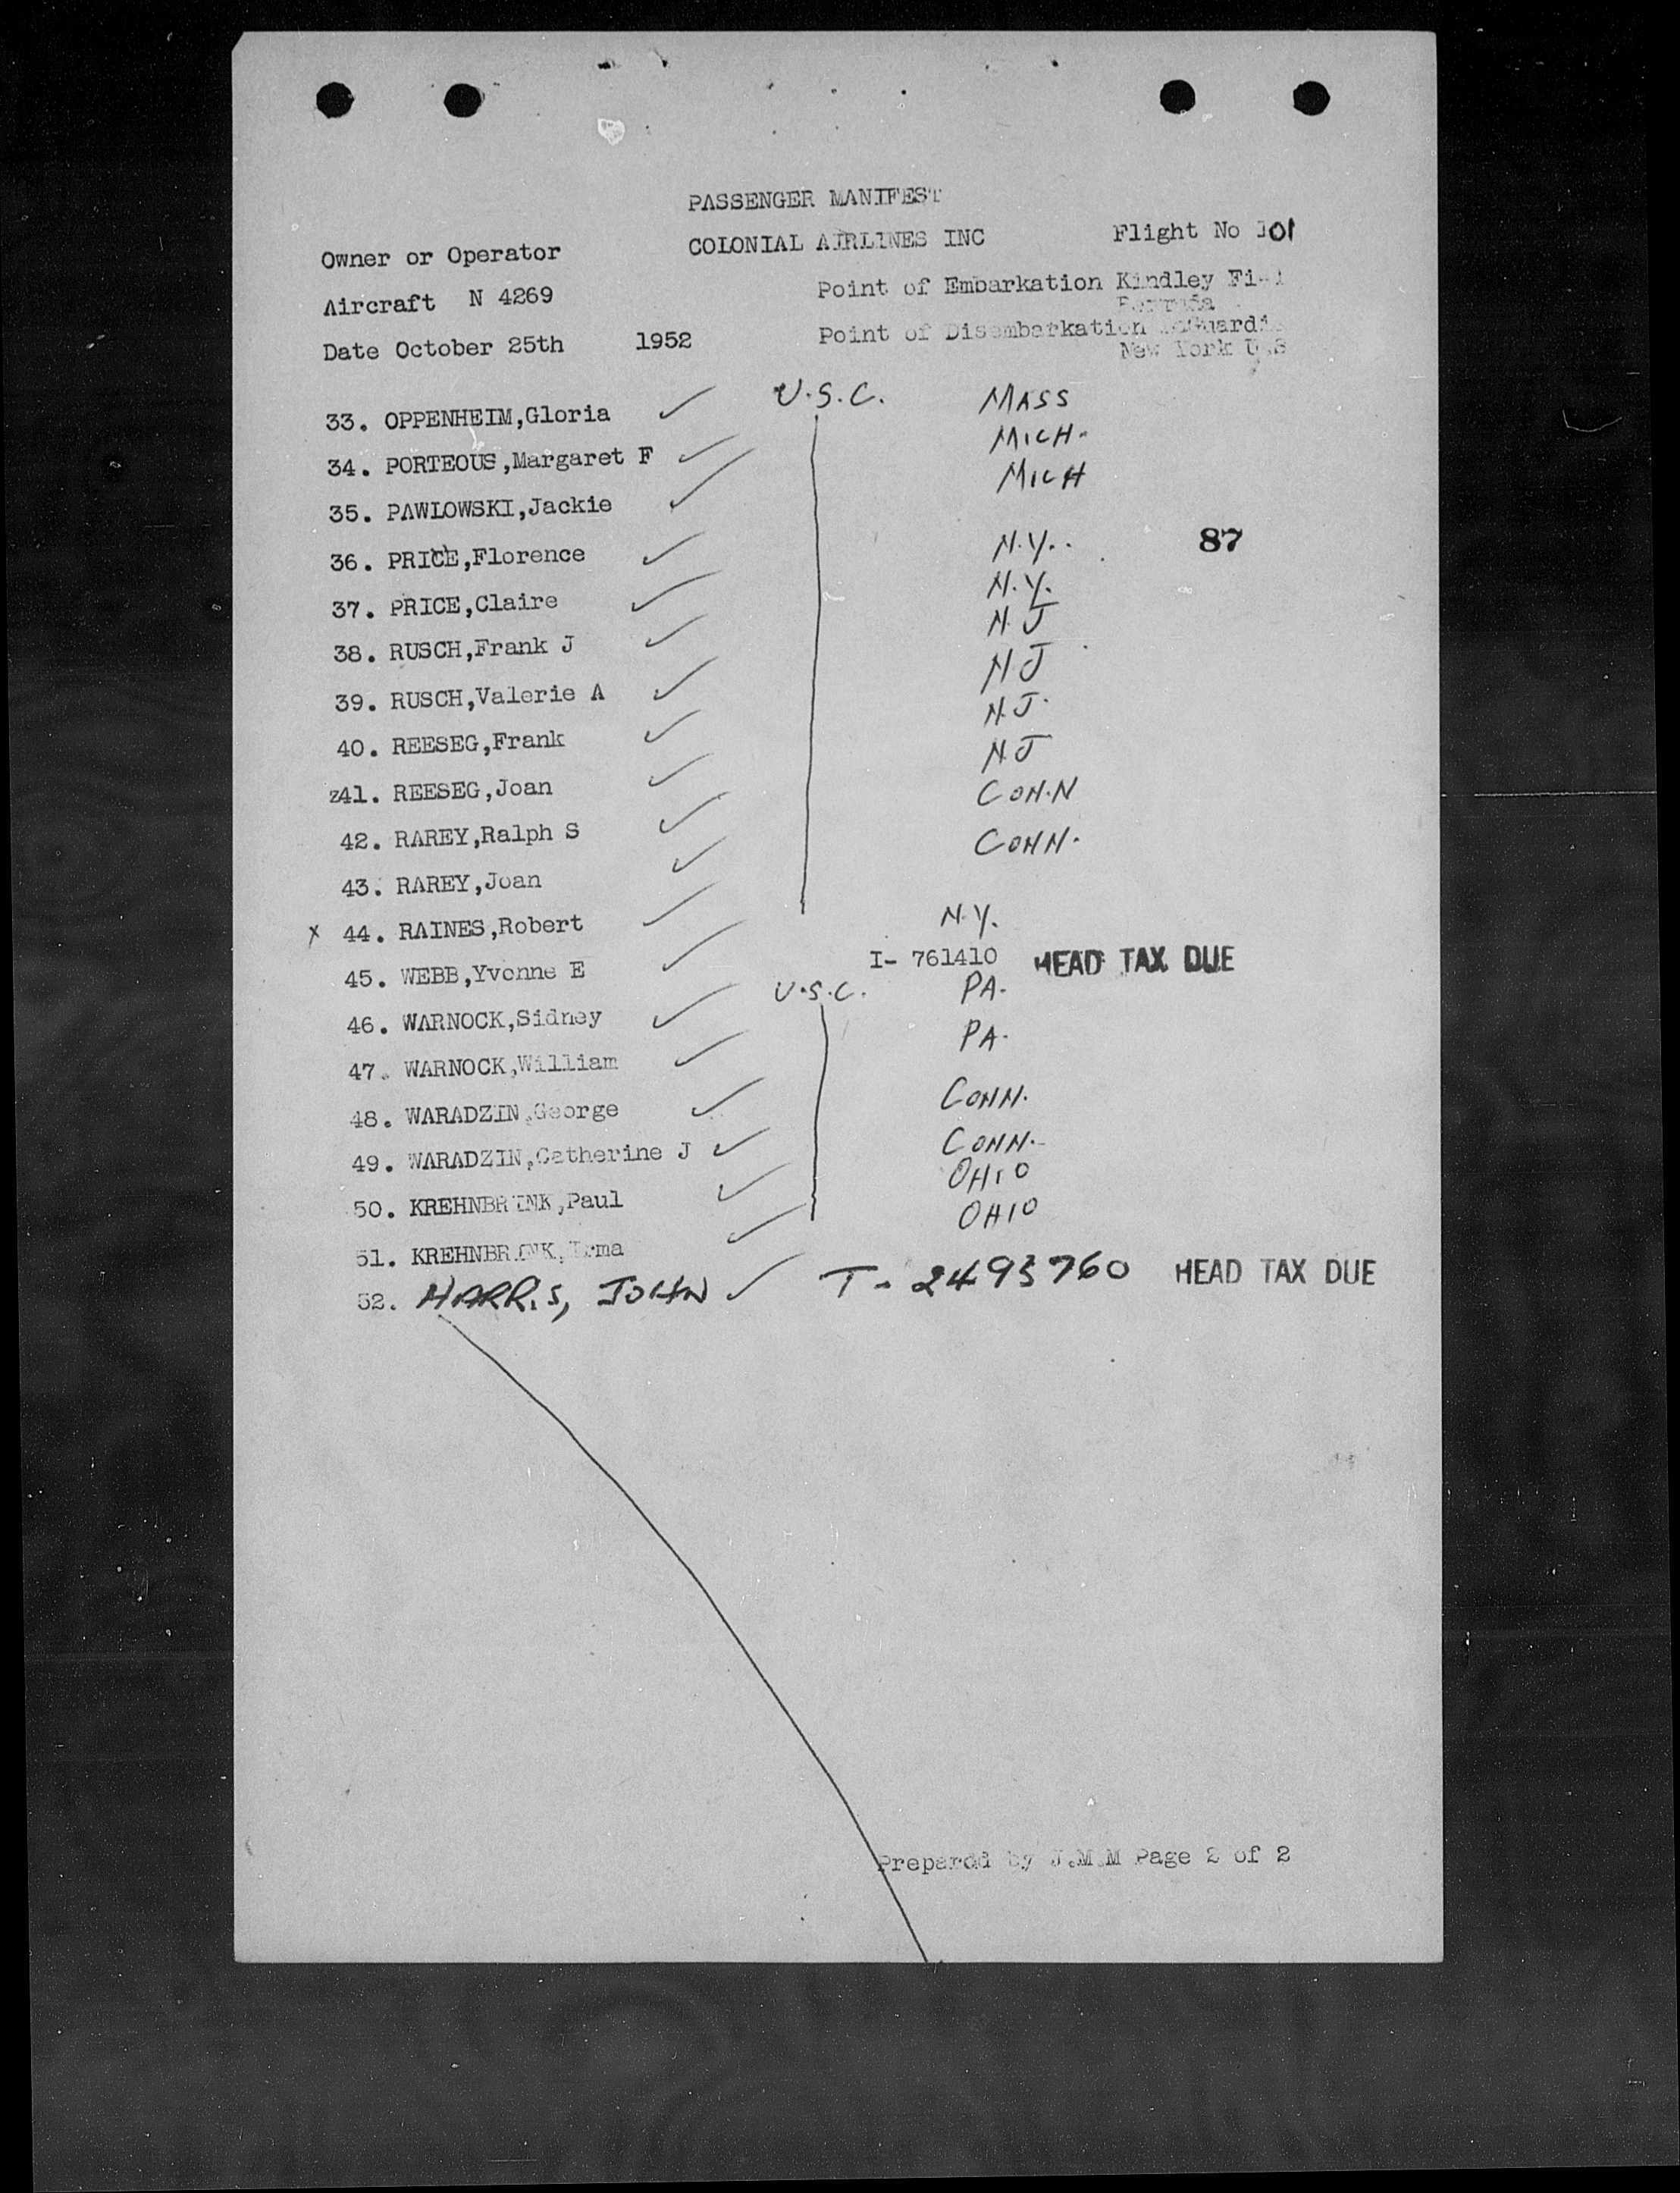 PASSENGER MANIFEST
Owner or Operator COLONIAL AIRLINES INC Flight No 101
Aircraft N 4269 Point of Embarkation Kindley
Bermuda
Date October 25th 1952 Point of Disembarkation
New York U.S
33. OPPENHEIM,Gloria ✓ U.S.C. MASS
34. PORTEOUS,Margaret F ✓ MICH.
35. PAWLOWSKI,Jackie ✓ MICH
87
36. PRICE,Florence ✓ N.Y.
37. PRICE,Claire ✓ N.Y.
38. RUSCH,Frank J ✓ N.J
39. RUSCH,Valerie A ✓ NJ
40. REESEG,Frank ✓ N.J.
z41. REESEG,Joan ✓ N.J
42. RAREY,Ralph S ✓ CONN
43. RAREY,Joan ✓ CONN.
x 44. RAINES,Robert ✓ N.Y.
45. WEBB,Yvonne E ✓ I- 761410 HEAD TAX DUE
46. WARNOCK,Sidney ✓ U.S.C. PA.
47. WARNOCK,William ✓ PA.
48. WARADZIN,George ✓ CONN.
49. WARADZIN,Catherine J ✓ CONN.
50. KREHNBRINK,Paul ✓ OHIO
51. KREHNBRINK,Irma ✓ OHIO
52. HARRIS, JOHN ✓ T- 2493760 HEAD TAX DUE
Prepardd by J.M.M Page 2 of 2